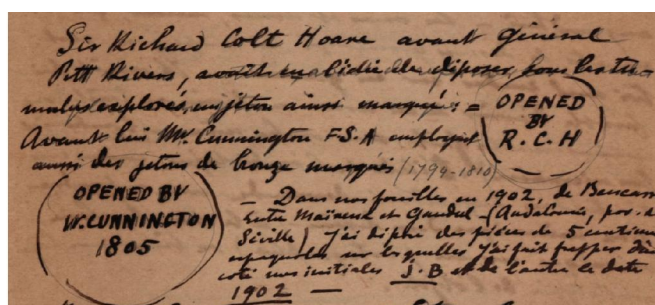 Sir Richard Colt Hoare avant Général
Pitt Rivers, avait eu l'idée de déposer, sous les tu-
mulus explorés, un jeton ainsi marqué: =
OPENED
BY
R. C. H
Avant lui Mr. Cunnington F.S.A employait
aussi des jetons de bronze marqués (1799-1810)
OPENED BY
W. CUNNINGTON
1805
— Dans nos fouilles en 1902, de
entre Mairena et Gandul - (Andalousie, prov. de
Séville) j'ai déposé des pièces de 5 centimes
espagnoles sur lesquelles j'ai fait frapper d'un
coté mes initiales J. B et de l'autre la date
1902 —